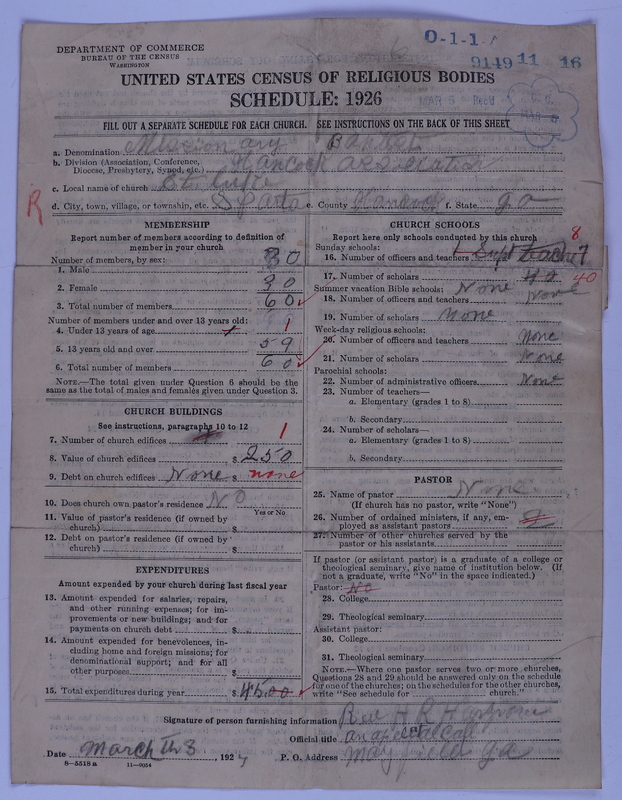 DEPARTMENT OF COMMERCE
BUREAU OF THE CENSUS
WASHINGTON
0-1-1
9149 11 16
UNITED STATES CENSUS OF RELIGIOUS BODIES
SCHEDULE: 1926
MAR 5 Rec'd
FILL OUT A SEPARATE SCHEDULE FOR EACH CHURCH. SEE INSTRUCTIONS ON THE BACK OF THIS SHEET
a. Denomination Missionary Baptist
b. Division (Association, Conference, Diocese, Presbytery, Synod, etc.) Hancock Association
c. Local name of church St Luke
d. City, town, village, or township, etc. Sparta e. County Hancock f. State ga
R
MEMBERSHIP
Report number of members according to definition of member in your church
Number of members, by sex:
1. Male 30
2. Female 30
3. Total number of members 60
Number of members under and over 13 years old:
4. Under 13 years of age 1
5. 13 years old and over 59
6. Total number of members 60
NOTE.—The total given under Question 6 should be the same as the total of males and females given under Question 3.
CHURCH BUILDINGS
See instructions, paragraphs 10 to 12
7. Number of church edifices 1
8. Value of church edifices $ 250
9. Debt on church edifices None $ none
10. Does church own pastor's residence No
Yes or No
11. Value of pastor's residence (if owned by church) $
12. Debt on pastor's residence (if owned by church) $
EXPENDITURES
Amount expended by your church during last fiscal year
13. Amount expended for salaries, repairs, and other running expenses; for improvements or new buildings; and for payments on church debt $
14. Amount expended for benevolences, including home and foreign missions; for denominational support; and for all other purposes $
15. Total expenditures during year $ 45.00
CHURCH SCHOOLS
Report here only schools conducted by this church
Sunday schools:
16. Number of officers and teachers 1 Supt teach 7 8
17. Number of scholars 40
Summer vacation Bible schools: None
18. Number of officers and teachers None
19. Number of scholars None
Week-day religious schools:
20. Number of officers and teachers None
21. Number of scholars None
Parochial schools:
22. Number of administrative officers None
23. Number of teachers—
a. Elementary (grades 1 to 8)
b. Secondary
24. Number of scholars—
a. Elementary (grades 1 to 8)
b. Secondary
PASTOR
25. Name of pastor None
(If church has no pastor, write "None")
26. Number of ordained ministers, if any, employed as assistant pastors
27. Number of other churches served by the pastor or his assistants
If pastor (or assistant pastor) is a graduate of a college or theological seminary, give name of institution below. (If not a graduate, write "No" in the space indicated.)
Pastor: No
28. College
29. Theological seminary
Assistant pastor:
30. College
31. Theological seminary
NOTE.—Where one pastor serves two or more churches, Questions 28 and 29 should be answered only on the schedule for one of the churches; on the schedules for the other churches, write "See schedule for church."
Signature of person furnishing information Rev H R
Official title
Date March the 3, 192
P. O. Address Mayfield ga
8—5518 a 11—9054